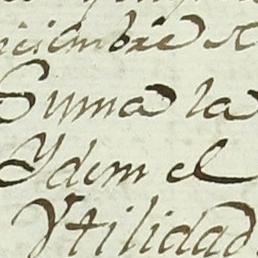 iciembre
Suma la
Ydem el
Ytilidad